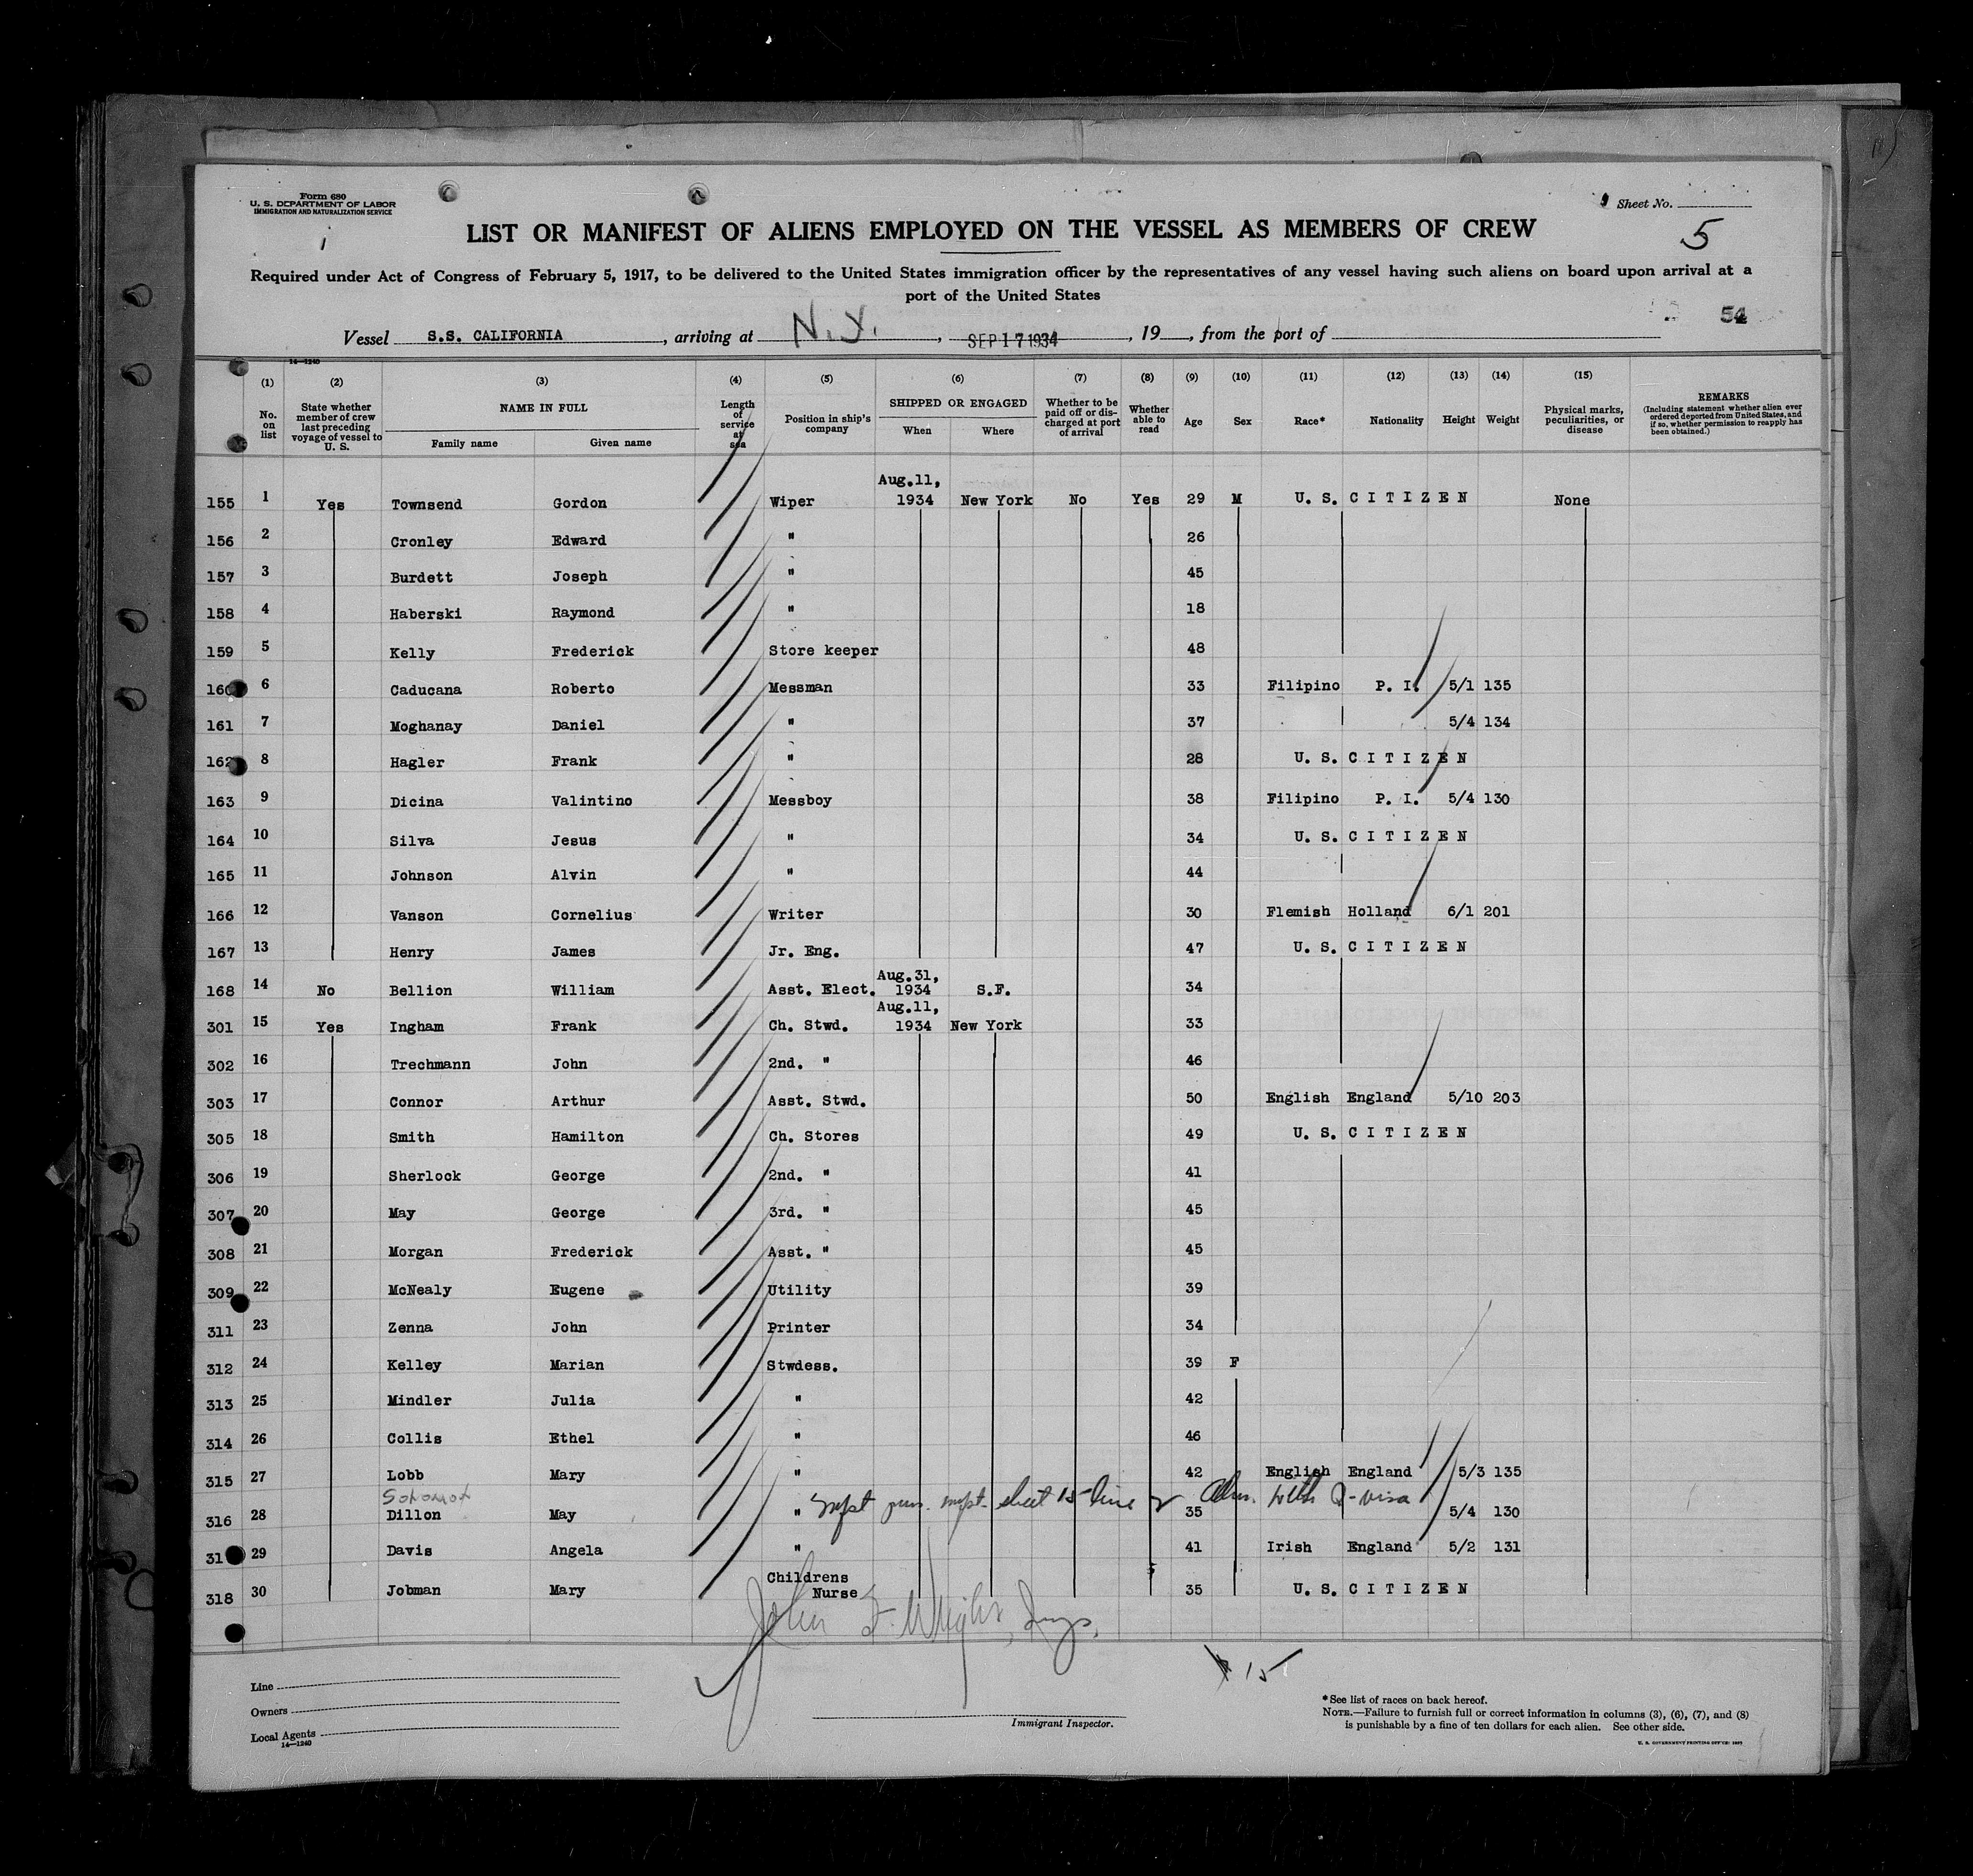 Form 680
U. S. DEPARTMENT OF LABOR
IMMIGRATION AND NATURALIZATION SERVICE
Sheet No.
5
LIST OR MANIFEST OF ALIENS EMPLOYED ON THE VESSEL AS MEMBERS OF CREW
Required under Act of Congress of February 5, 1917, to be delivered to the United States immigration officer by the representatives of any vessel having such aliens on board upon arrival at a
port of the United States
54
Vessel S.S. CALIFORNIA, arriving at N.Y., SEP 17 1934, 19, from the port of
14—1240
(1) (2) (3) (4) (5) (6) (7) (8) (9) (10) (11) (12) (13) (14) (15)
No. on list
State whether member of crew last preceding voyage of vessel to U. S.
NAME IN FULL
Family name Given name
Length of service at sea
Position in ship's company
SHIPPED OR ENGAGED
When Where
Whether to be paid off or discharged at port of arrival
Whether able to read
Age Sex Race* Nationality Height Weight
Physical marks, peculiarities, or disease
REMARKS
(Including statement whether alien ever ordered deported from United States, and if so, whether permission to reapply has been obtained.)
155 1 Yes Townsend Gordon Wiper Aug.11, 1934 New York No Yes 29 M U. S. CITIZEN None
156 2 Cronley Edward " 26
157 3 Burdett Joseph " 45
158 4 Haberski Raymond " 18
159 5 Kelly Frederick Store keeper 48
160 6 Caducana Roberto Messman 33 Filipino P. I. 5/1 135
161 7 Moghanay Daniel " 37 5/4 134
162 8 Hagler Frank " 28 U. S. CITIZEN
163 9 Dicina Valintino Messboy 38 Filipino P. I. 5/4 130
164 10 Silva Jesus " 34 U. S. CITIZEN
165 11 Johnson Alvin " 44
166 12 Vanson Cornelius Writer 30 Flemish Holland 6/1 201
167 13 Henry James Jr. Eng. 47 U. S. CITIZEN
168 14 No Bellion William Asst. Elect. Aug.31, 1934 S.F. 34
301 15 Yes Ingham Frank Ch. Stwd. Aug.11, 1934 New York 33
302 16 Trechmann John 2nd. " 46
303 17 Connor Arthur Asst. Stwd. 50 English England 5/10 203
305 18 Smith Hamilton Ch. Stores 49 U. S. CITIZEN
306 19 Sherlock George 2nd. " 41
307 20 May George 3rd. " 45
308 21 Morgan Frederick Asst. " 45
309 22 McNealy Eugene Utility 39
311 23 Zenna John Printer 34
312 24 Kelley Marian Stwdess. 39 F
313 25 Mindler Julia " 42
314 26 Collis Ethel " 46
315 27 Lobb Mary " 42 English England 5/3 135
sheet 15 line
316 28 Dillon May " 35 5/4 130
31 29 Davis Angela " 41 Irish England 5/2 131
318 30 Jobman Mary Childrens Nurse 35 U. S. CITIZEN
John F. Wright, Insp.
15
Line
Owners
Local Agents
14—1240
Immigrant Inspector.
*See list of races on back hereof.
NOTE.—Failure to furnish full or correct information in columns (3), (6), (7), and (8)
is punishable by a fine of ten dollars for each alien. See other side.